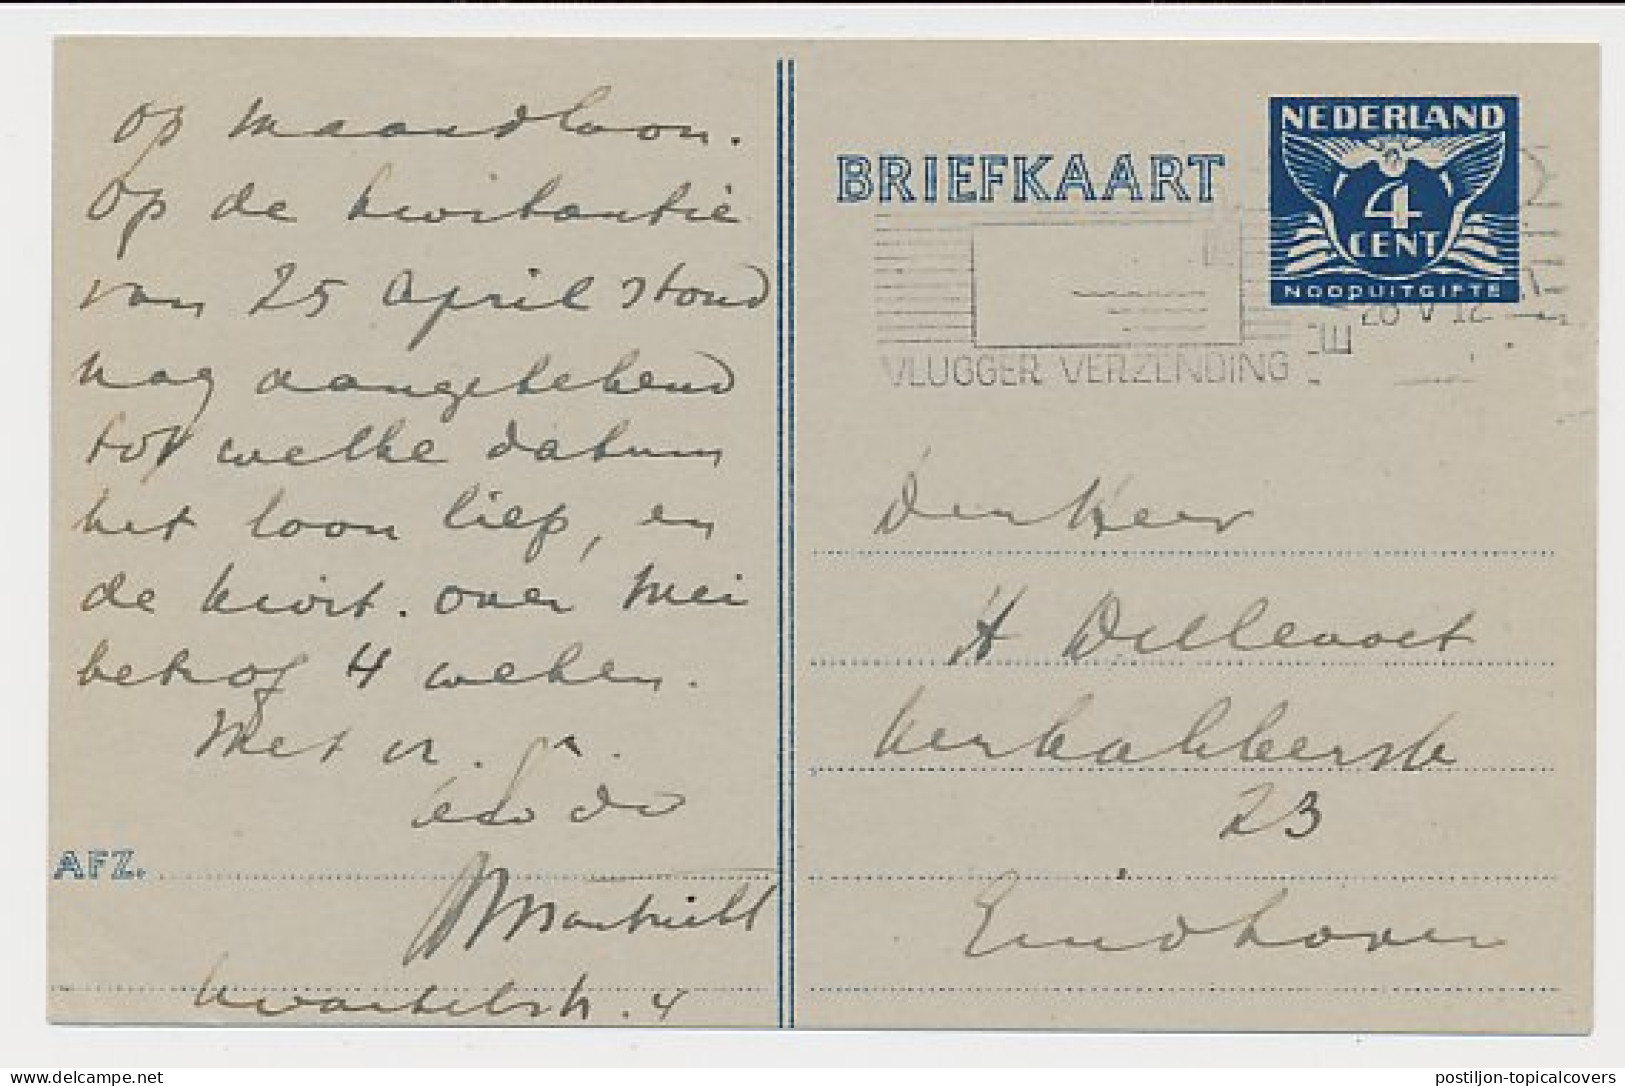 op maandloon.
Op de kwitantie
van 25 April stond
nog aangetekend
tot welke datum
het loon liep, en
de kwit. over Mei
betrof 4 weken.
Met
AFZ.
Kwartelstr. 4
BRIEFKAART
NEDERLAND
4
CENT
NOODUITGIFTE
VLUGGER VERZENDING
Den Heer
H Dillevoet
23
Eindhoven
postiljon-topicalcovers
delcampe.net